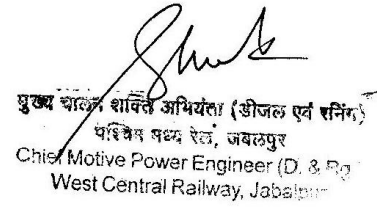 मुख्य चालन शक्ति अभियंता (डीजल एवं रनिंग)
पश्चिम मध्य रेल, जबलपुर
Chief Motive Power Engineer (D. & Rg
West Central Railway, Jabalpur